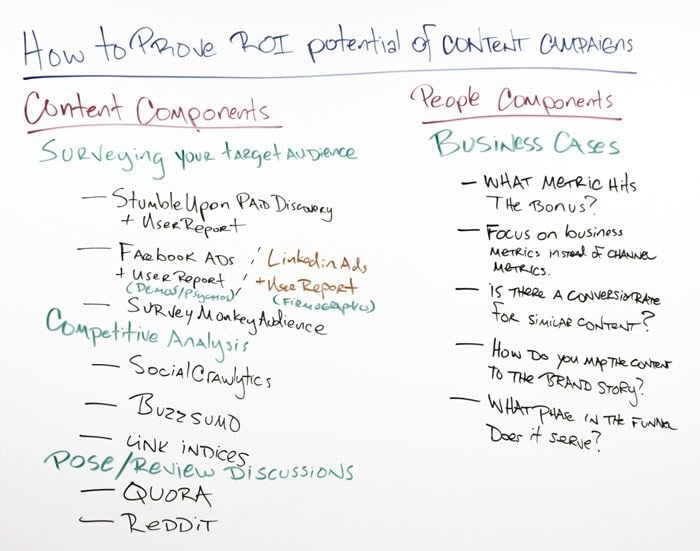 How to Prove ROI potential of content campaigns
Content Components
Surveying your target audience
— StumbleUpon Paid Discovery
+ UserReport
— Facebook Ads / LinkedIn Ads
+ UserReport / + UserReport
(Demos/Psychos) (Firmographics)
— SurveyMonkey Audience
Competitive Analysis
— SocialCrawlytics
— Buzzsumo
— Link indices
Pose/Review Discussions
— Quora
— Reddit
People Components
Business Cases
— What metric hits
the bonus?
— Focus on business
metrics instead of channel
metrics.
— Is there a conversion rate
for similar content?
— How do you map the content
to the brand story?
— What phase in the funnel
does it serve?